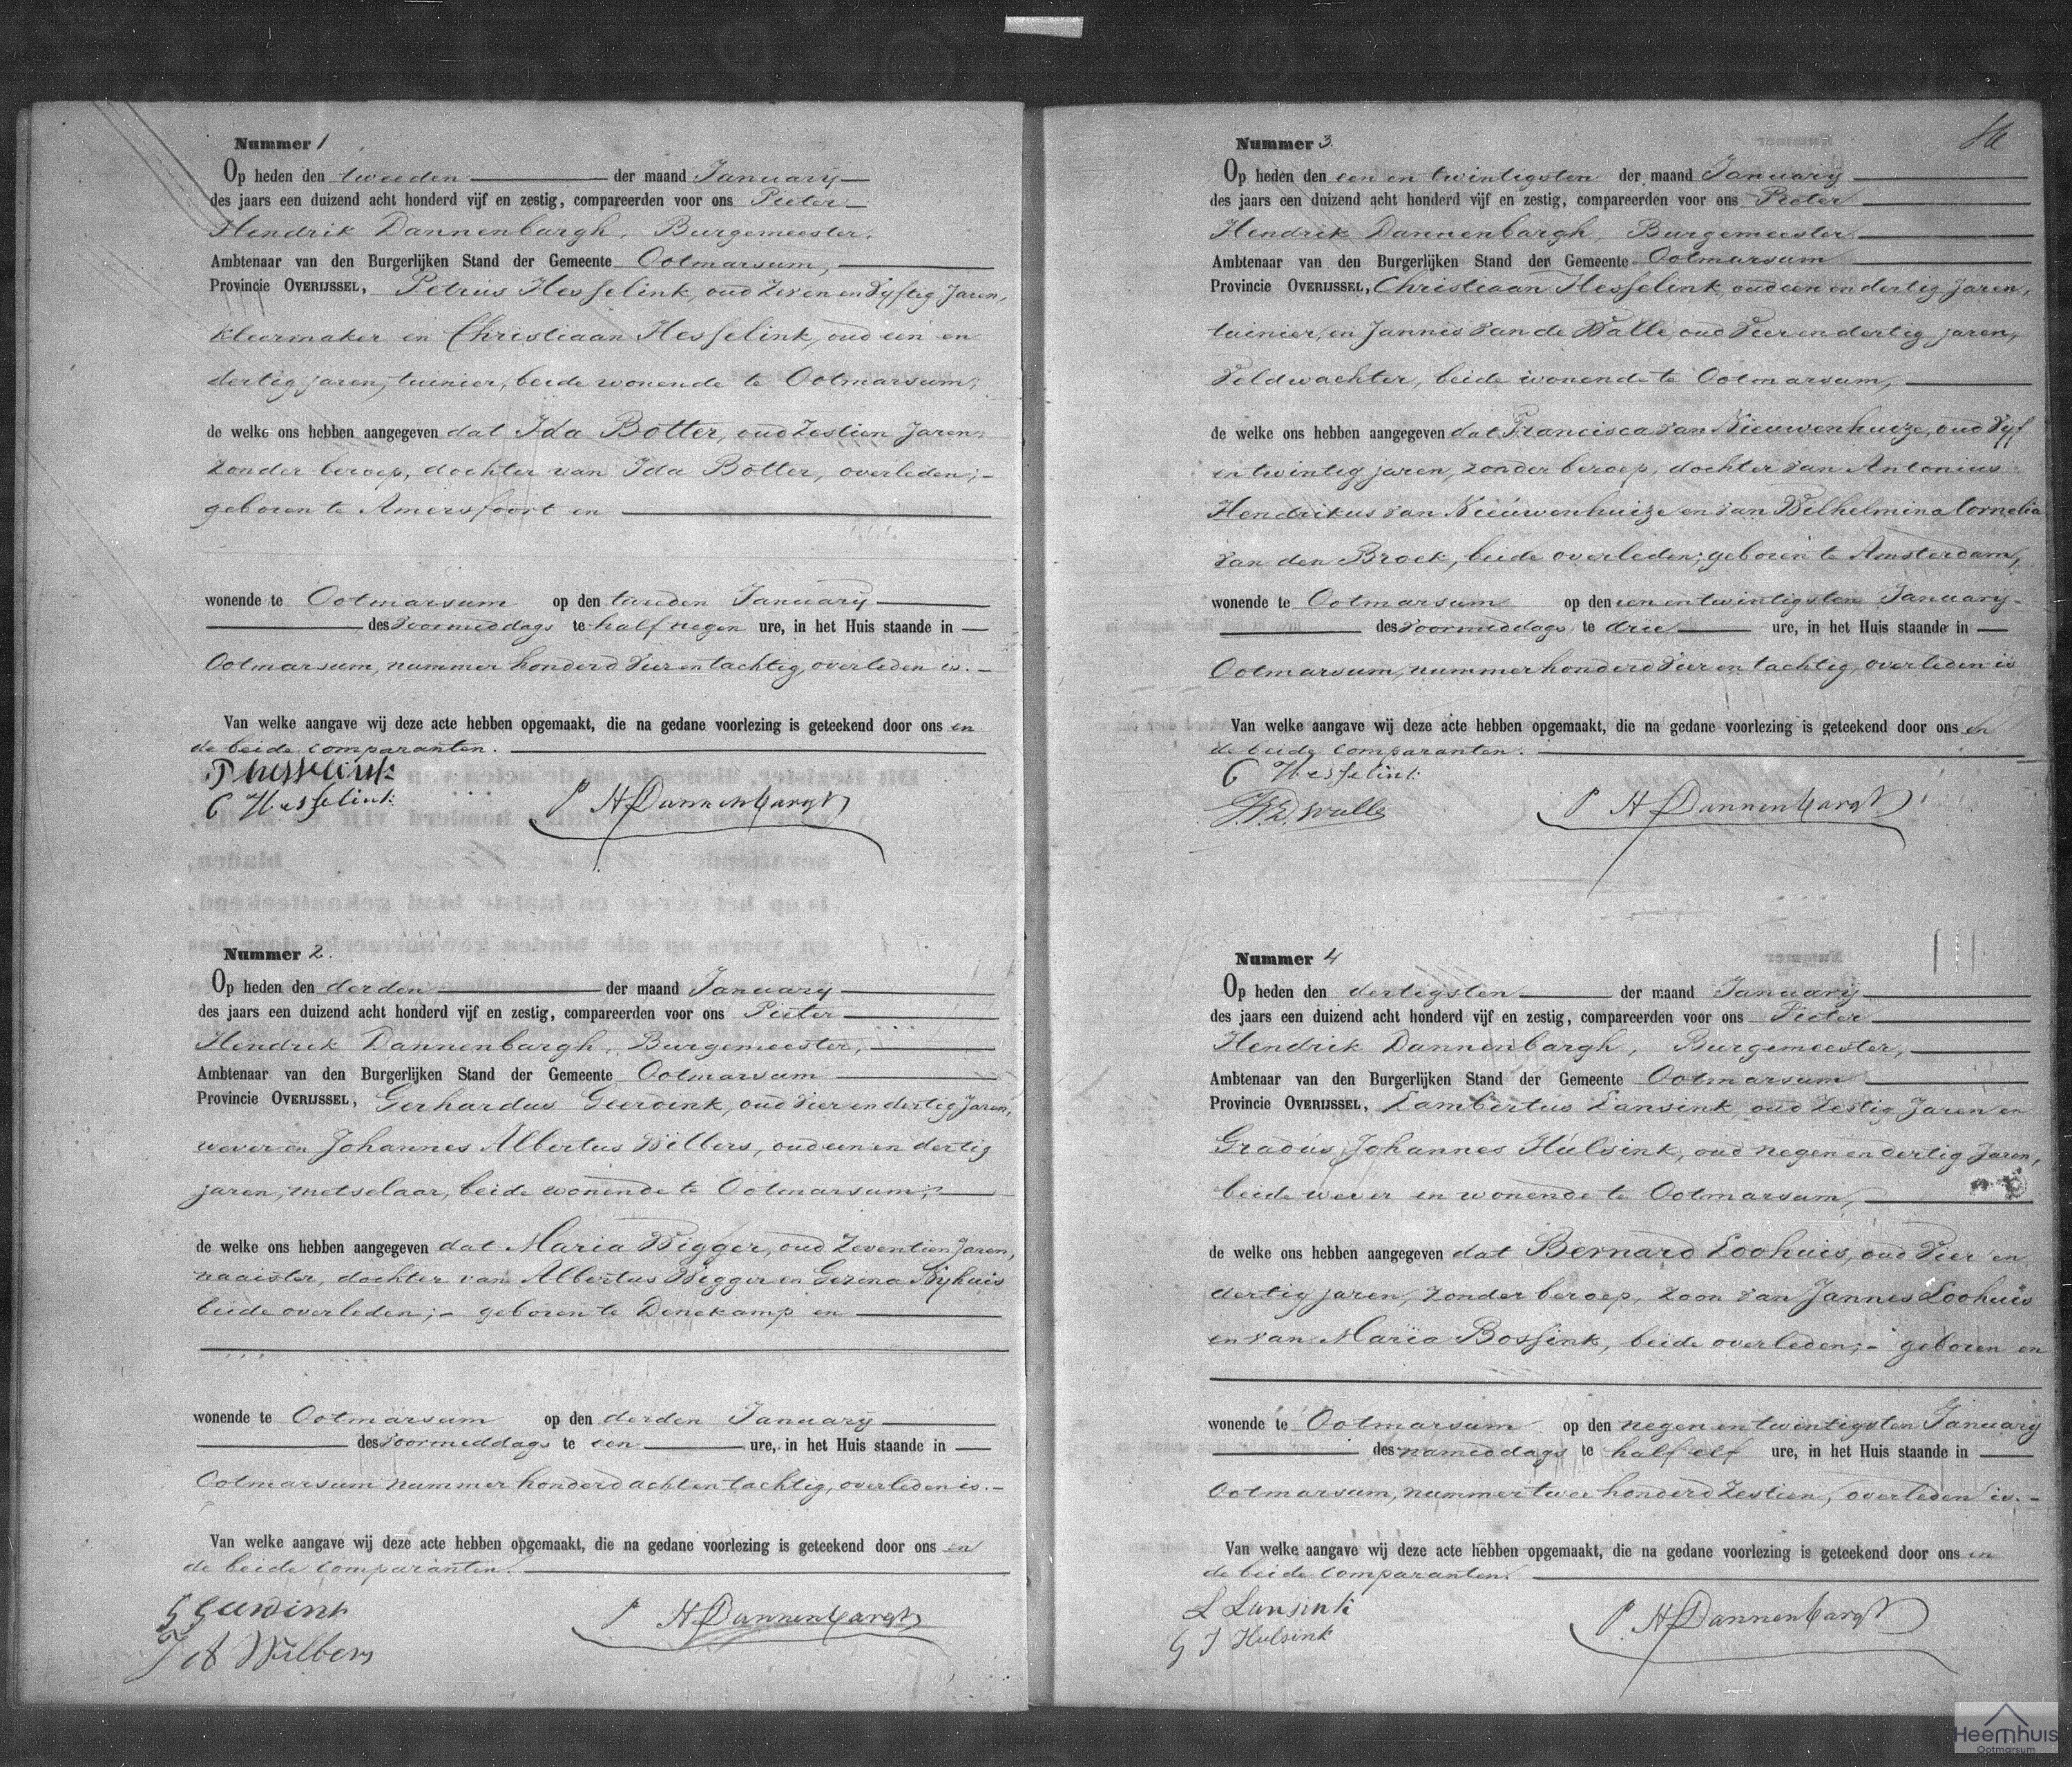 Nummer 1
Op heden den tweeden der maand January
des jaars een duizend acht honderd vijf en zestig, compareerden voor ons Pieter
Hendrik Dannenbargh, Burgemeester,
Ambtenaar van den Burgerlijken Stand der Gemeente Ootmarsum,
Provincie OVERIJSSEL, Petrus Hesselink, oud zeven en vyftig Jaren,
kleermaker en Christiaan Hesselink, oud een en
dertig jaren, tuinier, beide wonende te Ootmarsum,
de welke ons hebben aangegeven dat Ida Botter, oud zestien Jaren,
zonder beroep, dochter van Ida Botter, overleden;-
geboren te Amersfoort en
wonende te Ootmarsum op den tweeden January
des voormiddags te half negen ure, in het Huis staande in
Ootmarsum, nummer honderd vier en tachtig, overleden is.-
Van welke aangave wij deze acte hebben opgemaakt, die na gedane voorlezing is geteekend door ons en
de beide comparanten.
P Hesselink
C Hesselink
P H Dannenbargh
Nummer 2.
Op heden den derden der maand January
des jaars een duizend acht honderd vijf en zestig, compareerden voor ons Pieter
Hendrik Dannenbargh, Burgemeester,
Ambtenaar van den Burgerlijken Stand der Gemeente Ootmarsum
Provincie OVERIJSSEL, Gerhardus Geerdink, oud vier en dertig Jaren,
wever en Johannes Albertus Wilbers, oud een en dertig
jaren, metselaar, beide wonende te Ootmarsum,
de welke ons hebben aangegeven dat Maria Wigger, oud zeventien Jaren,
naaister, dochter van Albertus Wigger en Gezina Nyhuis
beide overleden;- geboren te Denekamp en
wonende te Ootmarsum op den derden January
des voormiddags te een ure, in het Huis staande in
Ootmarsum nummer honderd acht en tachtig, overleden is.-
Van welke aangave wij deze acte hebben opgemaakt, die na gedane voorlezing is geteekend door ons en
de beide comparanten.
G Geerdink
J A Wilbers
P H Dannenbargh
Nummer 3.
Op heden den een en twintigsten der maand January
des jaars een duizend acht honderd vijf en zestig, compareerden voor ons Pieter
Hendrik Dannenbargh, Burgemeester
Ambtenaar van den Burgerlijken Stand der Gemeente Ootmarsum
Provincie OVERIJSSEL, Christiaan Hesselink, oud een en dertig Jaren,
tuinier, en Jannis van de Walle, oud vier en dertig jaren,
veldwachter, beide wonende te Ootmarsum,
de welke ons hebben aangegeven dat Francisca van Nieuwenhuize, oud vyf
en twintig jaren, zonder beroep, dochter van Antonius
Hendrikus van Nieuwenhuize en van Wilhelmina Cornelia
van den Broek, beide overleden; geboren te Amsterdam,
wonende te Ootmarsum op den een en twintigsten January
des voormiddags te drie ure, in het Huis staande in
Ootmarsum, nummer honderd vier en tachtig, overleden is
Van welke aangave wij deze acte hebben opgemaakt, die na gedane voorlezing is geteekend door ons en
de beide comparanten.
C Hesselink
P H Dannenbargh
Nummer 4
Op heden den dertigsten der maand January
des jaars een duizend acht honderd vijf en zestig, compareerden voor ons Pieter
Hendrik Dannenbargh, Burgemeester,
Ambtenaar van den Burgerlijken Stand der Gemeente Ootmarsum
Provincie OVERIJSSEL, Lambertus Lansink, oud zestig Jaren en
Gradus Johannes Hulsink, oud negen en dertig Jaren,
beide wever en wonende te Ootmarsum,
de welke ons hebben aangegeven dat Bernard Loohuis, oud vier en
dertig jaren, zonder beroep, zoon van Jannes Loohuis
en van Maria Bossink, beide overleden;- geboren en
wonende te Ootmarsum op den negen en twintigsten January
des namiddags te half elf ure, in het Huis staande in
Ootmarsum, nummer twee honderd zestien, overleden is.-
Van welke aangave wij deze acte hebben opgemaakt, die na gedane voorlezing is geteekend door ons en
de beide comparanten.
L Lansink
G J Hulsink
P H Dannenbargh
Heemhuis
Ootmarsum